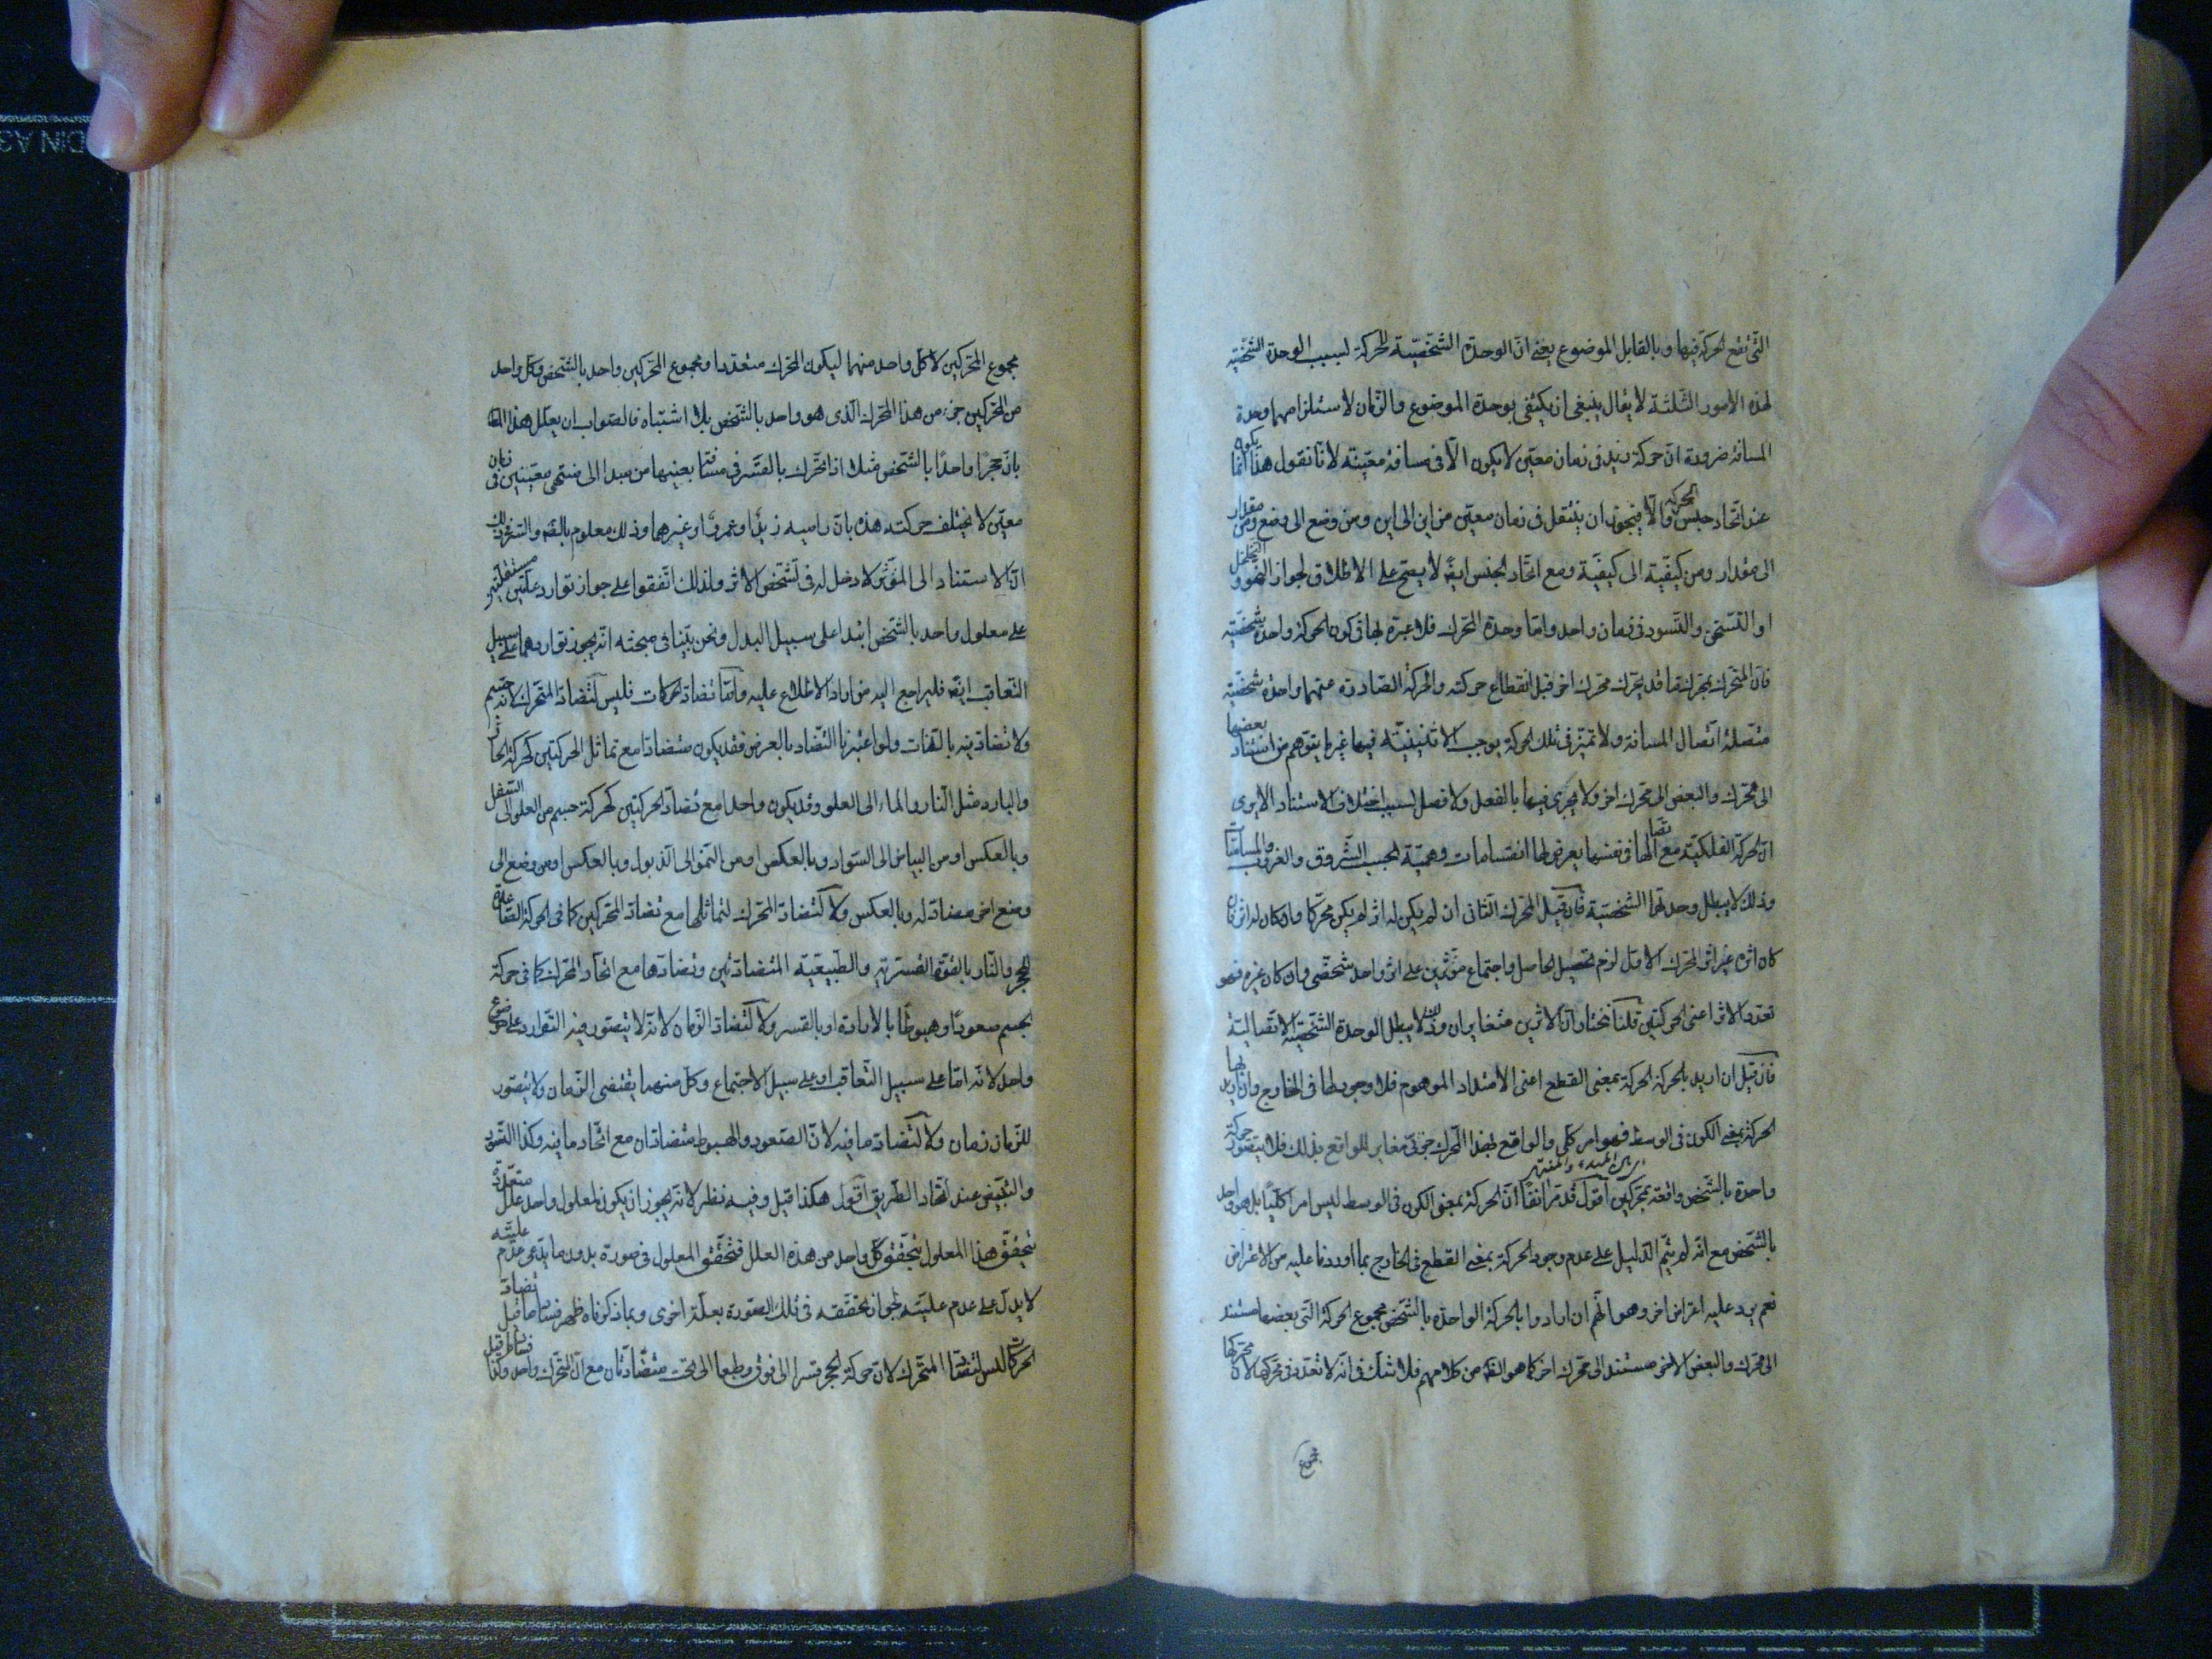 التى تقع الحركة فيها وبالقابل الموضوع يعنى ان الوحدة الشخصية للحركة بسبب الوحدة الشخصية
لهذه الامور الثلثة لا يقال ينبغى ان يكتفى بوحدة الموضوع والزمان لاستلزامهما وحدة
المسافة ضرورة ان حركة زيد فى زمان معين لا يكون الا فى مسافة معينة لانا نقول هذا انما يكون
عند اتحاد جنس الحركة والا فيجوز ان ينتقل فى زمان معين من اين الى اين ومن وضع الى وضع ومن مقدار
الى مقدار ومن كيفية الى كيفية ومع اتحاد الجنس ايضا لا يصح على الاطلاق لجواز النمو و التخلخل
او التسخن والتسود فى زمان واحد واما وحدة المحرك فلا عبرة لها فى كون الحركة واحدة شخصية
فان المتحرك بمحرك ما قد يحركه محرك اخر قبل انقطاع حركته والحركة الصادرة عنهما واحدة شخصية
متصلة اتصال المسافة ولا تميز فى تلك الحركة يوجب الاثنينية فيها غير ما يتوهم من استناد بعضها
الى محرك والبعض الى محرك اخر ولا تجزى فيها بالفعل ولا فصل بسبب اختلاف الاستناد الا يرى
ان الحركة الفلكية مع اتصالها فى نفسها يعرض لها انقسامات وهمية بحسب الشروق والغروب والمسامتات
وذلك لا يبطل وحدتها الشخصية فان قيل المحرك الثانى ان لم يكن له اثر لم يكن محركا وان كان له اثر فان
كان اثره عين اثر المحرك الاول لزم تحصيل الحاصل واجتماع مؤثرين على اثر واحد شخصى وان كان غيره فهو
تعدد الاثر اعنى الحركتين قلنا نختار ان الاثرين متغايران وذلك لا يبطل الوحدة الشخصية الاتصالية
فان قيل ان اريد بالحركة الحركة بمعنى القطع اعنى الامتداد الموهوم فلا وجود لها فى الخارج وان اريد بها
الحركة بمعنى الكون فى الوسط فهو امر كلى والواقع لهذا المحرك جزئى مغاير للواقع بذلك فلا يتصور حركة
واحدة بالشخص واقعة بمحركين اقول قد مر انفا ان الحركة بمعنى الكون فى الوسط بين المبدء والمنتهى ليس امرا كليا بل هو واحد
بالشخص مع انه لم يتم الدليل على عدم وجود الحركة بمعنى القطع فى الخارج بما اوردنا عليه من الاعتراض
نعم يرد عليه اعتراض اخر وهو انهم ان ارادوا بالحركة الواحدة بالشخص مجموع الحركة التى بعضها مستند
الى محرك والبعض الاخر مستند الى محرك اخر كما هو الظ من كلامهم فلا شك فى انه لا تعدد فى محركها لان محركها
مجموع
مجموع المحركين لا كل واحد منهما ليكون المحرك متعددا ومجموع المحركين واحد بالشخص وكل واحد
من المحركين جزء من هذا المحرك الذى هو واحد بالشخص بلا اشتباه فالصواب ان يعلل هذا
بان حجرا واحدا بالشخص مثلا اذا تحرك بالقسر فى مسافة بعينها من مبدا الى منتهى معينين فى زمان
معين لا يختلف حركته هذه بان راميه زيدا وعمروا او غيرهما وذلك معلوم
ان الاستناد الى المؤثر لا دخل له فى تشخص الاثر ولذلك اتفقوا على جواز توارد علتين مستقلتين
على معلول واحد بالشخص ابتدا على سبيل البدل ونحن بينا فى مبحثه انه يجوز تواردهما على سبيل
التعاقب ايضا فليراجع اليه من اراد الاطلاع عليه واما تضاد الحركات فليس لتضاد المتحرك لانه جسم
ولا تضاد فيه بالذات ولو اعتبرنا التضاد بالعرض فقد يكون متضادا مع تماثل الحركتين كحركة الحار
والبارد مثل النار والماء الى العلو وقد يكون واحدا مع تضاد الحركتين كحركة جسم من العلو الى السفل
وبالعكس او من البياض الى السواد وبالعكس او من النمو الى الذبول وبالعكس او من وضع الى
وضع اخر مضاد له وبالعكس ولا لتضاد المحرك لتماثلها مع تضاد المحركين كما فى الحركة الصاعدة
للحجر والنار بالقوة القسرية والطبيعية المتضادتين وتضادها مع اتحاد المحرك كما فى حركة
الجسم صعودا وهبوطا بالارادة او بالقسر ولا لتضاد الزمان لانه لا يتصور فيه التوارد على موضوع
واحد لانه اما على سبيل التعاقب او على سبيل الاجتماع وكل منهما يقتضى الزمان ولا يتصور
للزمان زمان ولا لتضاد ما فيه لان الصعود والهبوط متضادان مع اتحاد ما فيه وكذا التسود
والتبيض عند اتحاد الطريق اقول هكذا قيل وفيه نظر لانه يجوز ان يكون لمعلول واحد علل متعددة
يتحقق هذا المعلول بتحقق كل واحد من هذه العلل فتحقق المعلول فى صورة بدون ما يدعى عدم عليته
لا يدل على عدم عليته لجواز تحققه فى تلك الصورة بعلة اخرى وبما ذكرناه ظهر فساد ما قيل تضاد
الحركات ليس لتضاد المتحرك لان حركة الحجر قسرا الى فوق وطبعا الى تحت متضادتان مع ان المتحرك واحد وكذا فساد ما قيل